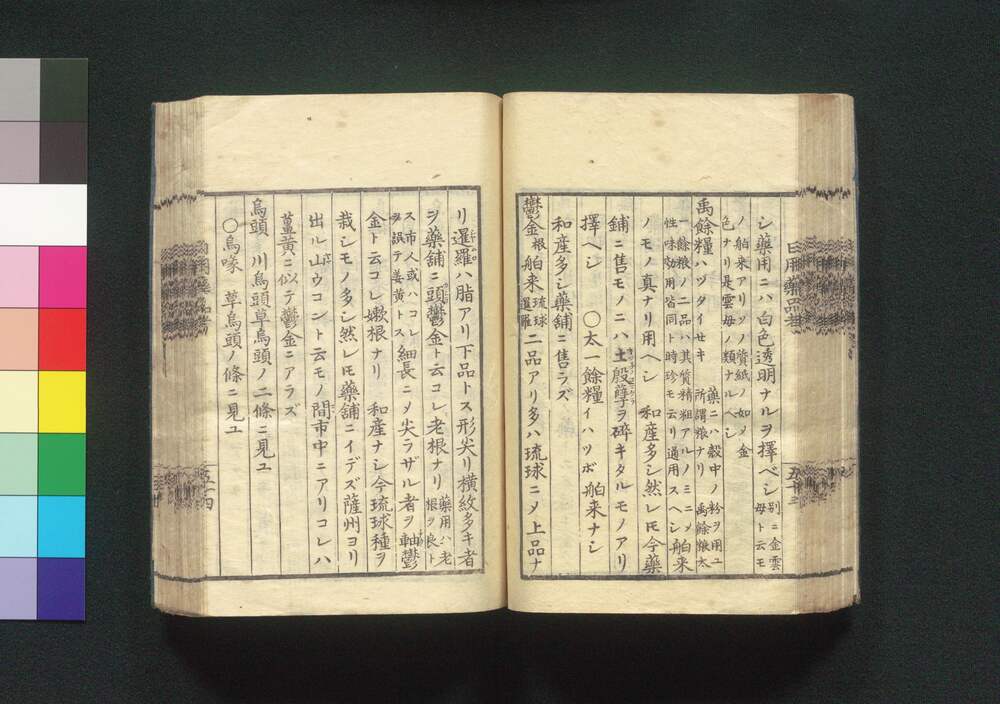 シ藥用ニハ白色透明ナルヲ擇ベシ別ニ金雲母ト云モ
ノ舶来アリソノ質紙ノ如メ金色ナリ是雲母ノ類ナルヘシ
禹餘糧ハツタイセキ 藥ニハ殻中ノ粉ヲ用ユ所謂粮ナリ 禹餘粮太
一餘粮ノ二品ハ其質精粗アルノミニメ舶来性味効用皆同ト時珍モ云リ通用スヘシ
ノモノ真ナリ用ヘシ 和産多シ然レモ今藥
鋪ニ售モノニハ土殷孽ヲ碎キタルモノアリ
擇ヘシ 〇太一餘糧イハツボ舶来ナシ
和産多シ藥鋪ニ售ラズ
鬱金根舶来琉球暹羅二品アリ多ハ琉球ニメ上品ナ
リ暹羅ハ脂アリ下品トス形尖リ横紋多キ者
ヲ藥鋪ニ頭鬱金ト云コレ老根ナリ藥用ハ老根ヲ良ト
ス市人或ハコレヲ誤テ姜黄トス細長ニメ尖ラザル者ヲ軸鬱
金ト云コレ嫩根ナリ 和産ナシ今琉球種ヲ
栽シモノ多シ然レモ藥鋪ニイデズ薩州ヨリ
出ル山ウコント云モノ間市中ニアリコレハ
薑黄ニ似テ鬱金ニアラズ
烏頭 川烏頭草烏頭ノ二條ニ見ユ
〇烏喙 草烏頭ノ條ニ見ユ